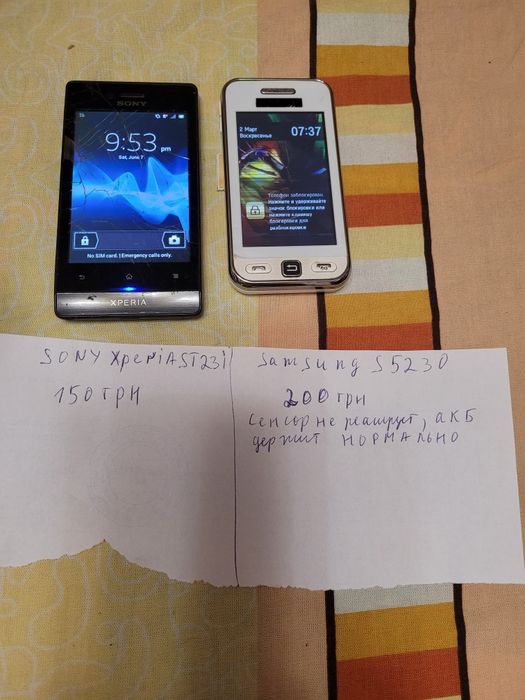 SONY
9:53 pm
Sat, June 7
No SIM card. | Emergency calls only.
XPERIA
2 Март
Воскресенье
07:37
Телефон заблокирован
Нажмите и удерживайте
значок блокировки или
нажмите клавишу
блокировки для
разблокировки
SONY XperiA ST23i
150 ГРН
Samsung S5230
200 ГРН
Сенсор не реагирует, АКБ
держит НОРМАЛЬНО